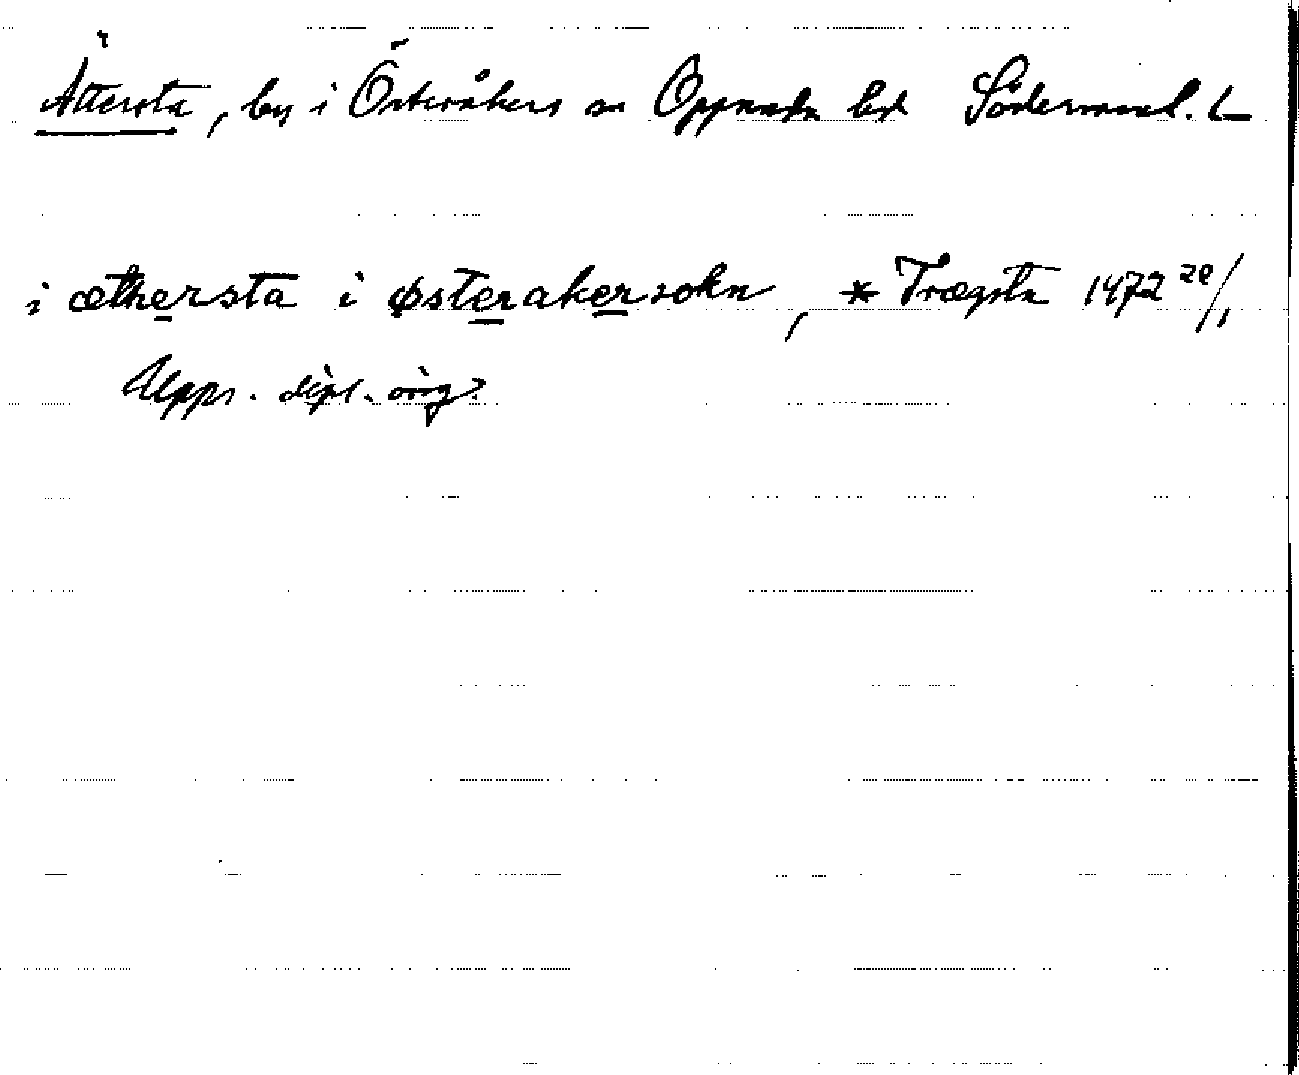 Ättersta, by i Österåkers sn Oppunda hd Södermanl. L
i æthersta i østerakersokn, * Trægsta 1472 20/1
Upps. dipl. orig.